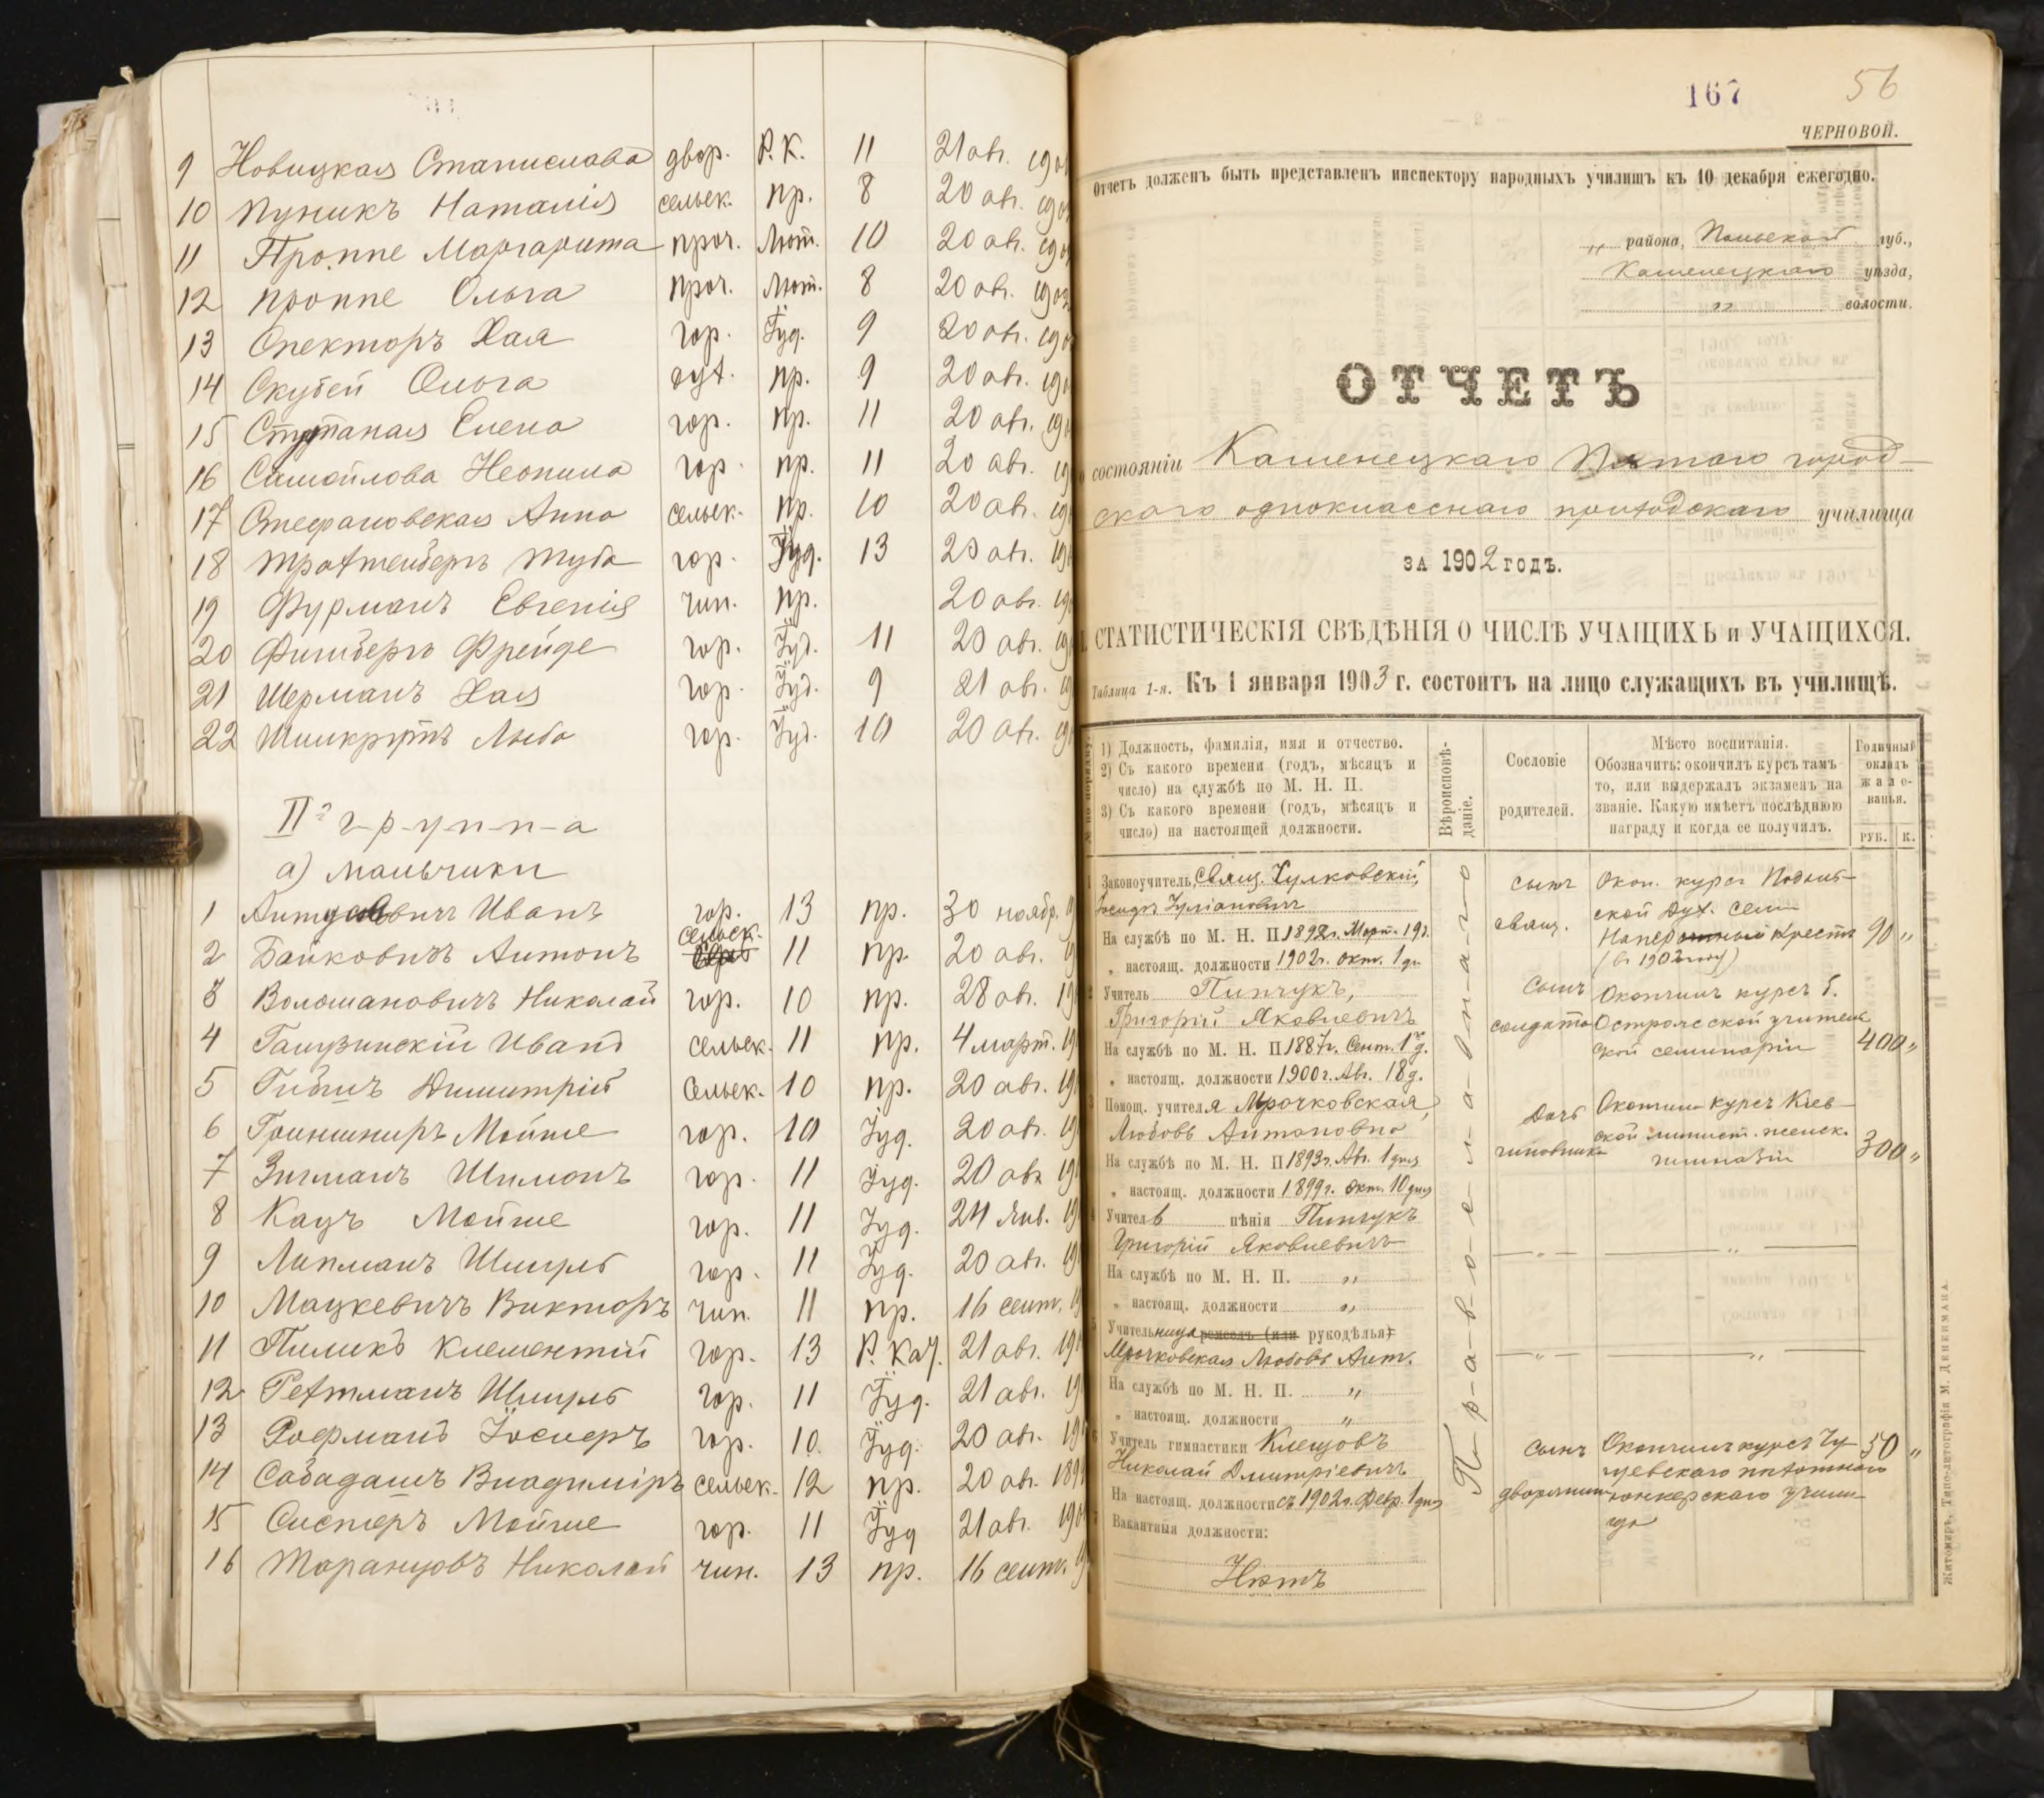 9 Новицкая Станислава двор. Р. К. 11 21 авг.
10 Пуникъ Наталія сельск. пр. 8 20 авг.
11 Проппе Маргарита проч. Лют. 10 20 авг.
12 Проппе Ольга проч. Лют. 8 20 авг. 1902
13 Спекторъ Хая гор. Іуд. 9 20 авг.
14 Скубей Ольга дух. пр. 9 20 авг.
15 Елена гор. пр. 11 20 авг.
16 Самойлова Неонила гор. пр. 11 20 авг.
17 Стефановская Анна сельск. пр. 10 20 авг.
18 Трахтенбергъ Туба гор. Іуд. 13 20 авг.
19 Фурманъ Евгенія чин. пр. 20 авг.
20 Фрейде гор. Іуд. 11 20 авг.
21 Шерманъ Хая гор. Іуд. 9 21 авг.
22 Шинкрутъ Люба гор. Іуд. 10 20 авг.
II г-р-у-п-п-а
а) мальчики
1 Иванъ гор. 13 пр. 30 ноябр.
2 Байковичъ Антонъ сельск. 11 пр. 20 авг.
3 Волошановичъ Николай гор. 10 пр. 28 авг.
4 Галузинскій Иванъ сельск. 11 пр. 4 март.
5 Димитрій сельск. 10 пр. 20 авг.
6 Гриншпиръ Мойше гор. 10 Іуд. 20 авг.
7 Зигманъ Шимонъ гор. 11 Іуд. 20 авг.
8 Кацъ Мойше гор. 11 Іуд. 24 янв.
9 Липманъ Шмуль гор. 11 Іуд. 20 авг.
10 Мацкевичъ Викторъ чин. 11 пр. 16 сент.
11 Пиликъ Климентій гор. 13 Р. Каѳ. 21 авг.
12 Рехтманъ Шмуль гор. 11 Іуд. 21 авг.
13 Ройфманъ гор. 10. Іуд. 20 авг.
14 Сабадашъ Владиміръ сельск. 12 пр. 20 авг.
15 Мойше гор. 11 Іуд 21 авг.
16 Таранцовъ Николай чин. 13 пр. 16 сент.
167 56
ЧЕРНОВОЙ.
Отчетъ долженъ быть представленъ инспектору народныхъ училищъ къ 10 декабря ежегодно.
„ района, Подольской губ.,
Каменецкаго уѣзда,
„ волости.
ОТЧЕТЪ
о состояніи Каменецкаго Пятаго город-
ского однокласснаго приходскаго училища
ЗА 1902 ГОДЪ.
I. СТАТИСТИЧЕСКІЯ СВѢДѢНІЯ О ЧИСЛѢ УЧАЩИХЪ и УЧАЩИХСЯ.
Таблица 1-я. Къ 1 января 1903 г. состоитъ на лицо служащихъ въ училищѣ.
№ по порядку.
1) Должность, фамилія, имя и отчество.
2) Съ какого времени (годъ, мѣсяцъ и
число) на службѣ по М. Н. П.
3) Съ какого времени (годъ, мѣсяцъ и
число) на настоящей должности.
Вѣроисповѣ-
даніе.
Сословіе
родителей.
Мѣсто воспитанія.
Обозначить: окончилъ курсъ тамъ
то, или выдержалъ экзаменъ на
званіе. Какую имѣетъ послѣднюю
награду и когда ее получилъ.
Годичный
окладъ
жало-
ванья.
РУБ. К.
П-р-а-в-о-с-л-а-в-н-а-г-о
1 Законоучитель, Свящ. Чулковскій,
На службѣ по М. Н. П. 1892 г. Март. 19 д.
„ настоящ. должности 1902 г. окт. 1 дн
сынъ
свящ.
Окон. курсъ Подоль-
ской Дух. Сем.
Наперсный Крестъ
90 „
2 Учитель Пинчукъ,
Григорій Яковлевичъ
На службѣ по М. Н. П. 1887 г. Сент. 1 д.
„ настоящ. должности 1900 г. Авг. 18 д.
Сынъ
солдата
Окончилъ курсъ б.
Острожской учитель
ской семинаріи
400 „
3 Помощ. учителя Мрочковская,
Любовь Антоновна
На службѣ по М. Н. П. 1893 г. Авг. 1 дня
„ настоящ. должности 1899 г. окт. 10 дня
Дочь
чиновника
Окончила курсъ Кіев-
ской минист. женск.
гимназіи
300 „
4 Учитель пѣнія Пинчукъ
Григорій Яковлевичъ
На службѣ по М. Н. П. „
„ настоящ. должности „
5 Учительница ремеслъ (или рукодѣлья)
Мрочковская Любовь Ант.
На службѣ по М. Н. П. „
„ настоящ. должности „
6 Учитель гимнастики Клещовъ
Николай Дмитріевичъ
На настоящ. должности съ 1902 г. Февр. 1 дня
сынъ
дворянина
Окончилъ курсъ Чу-
гуевскаго пѣхотнаго
юнкерскаго учили-
ща
50 „
7 Вакантныя должности:
Нѣтъ
Житомиръ, Типо-литографія М. ДЕНЕНМАНА.